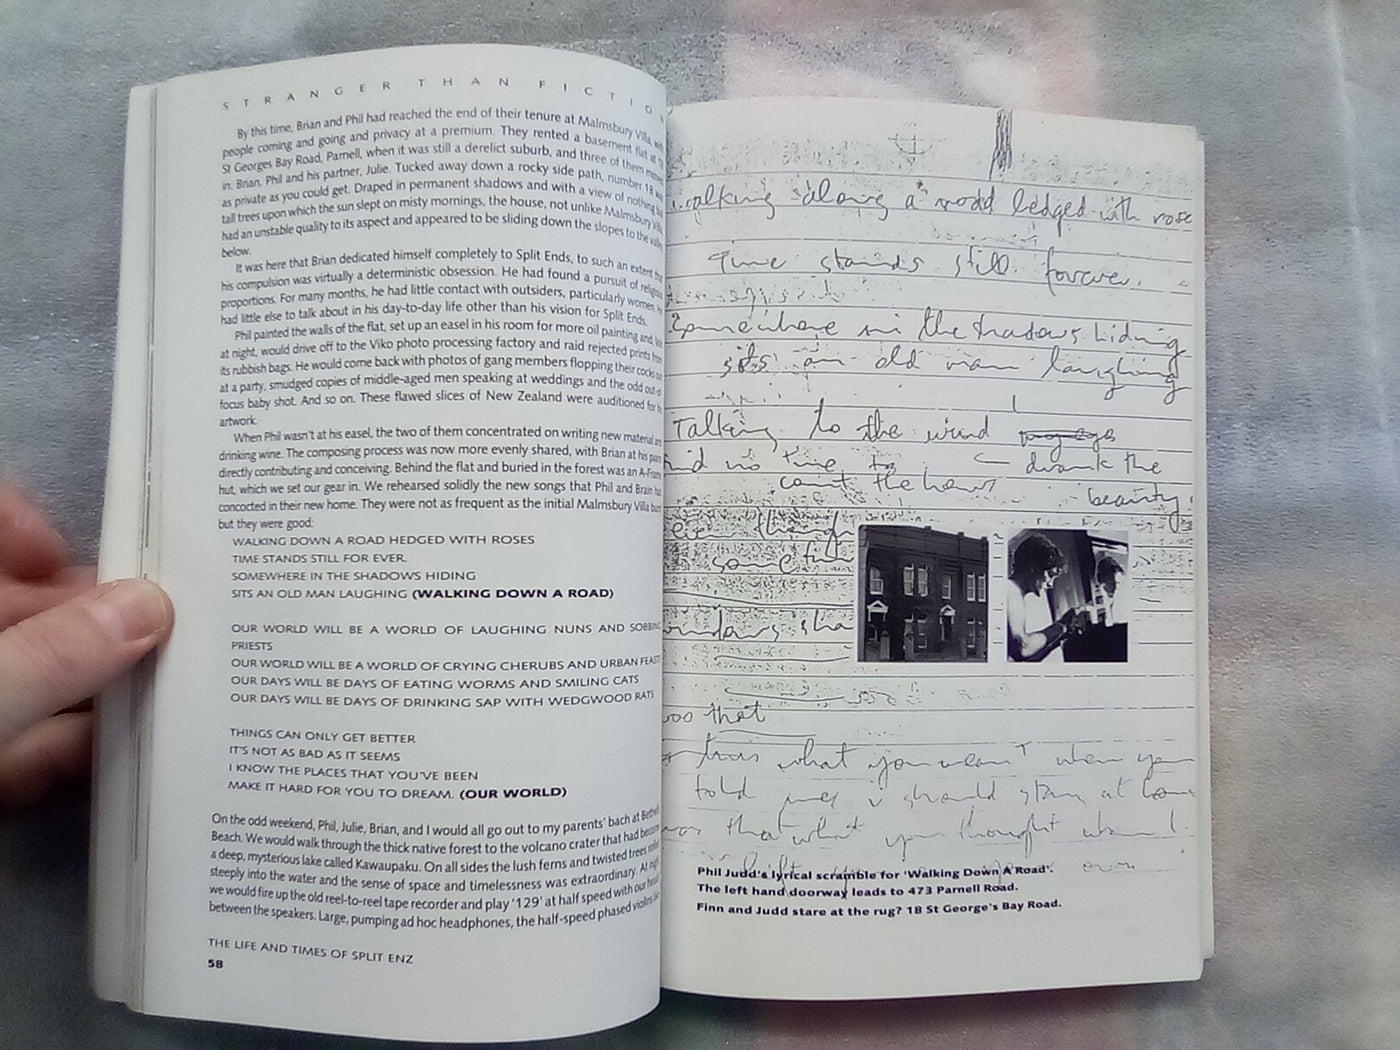 STRANGER THAN FICTION
By this time, Brian and Phil had reached the end of their tenure at Malmsbury Villa, with
people coming and going and privacy at a premium. They rented a basement flat at
St Georges Bay Road, Parnell, when it was still a derelict suburb, and three of them moved
in: Brian, Phil and his partner, Julie. Tucked away down a rocky side path, number 18 was
as private as you could get. Draped in permanent shadows and with a view of nothing but
tall trees upon which the sun slept on misty mornings, the house, not unlike Malmsbury Villa,
had an unstable quality to its aspect and appeared to be sliding down the slopes to the valley
below.
It was here that Brian dedicated himself completely to Split Ends, to such an extent that
his compulsion was virtually a deterministic obsession. He had found a pursuit of religious
proportions. For many months, he had little contact with outsiders, particularly women. He
had little else to talk about in his day-to-day life other than his vision for Split Ends.
Phil painted the walls of the flat, set up an easel in his room for more oil painting and, late
at night, would drive off to the Viko photo processing factory and raid rejected prints from
its rubbish bags. He would come back with photos of gang members flopping their cocks out
at a party, smudged copies of middle-aged men speaking at weddings and the odd out-of-
focus baby shot. And so on. These flawed slices of New Zealand were auditioned for his
artwork.
When Phil wasn't at his easel, the two of them concentrated on writing new material and
drinking wine. The composing process was now more evenly shared, with Brian at his piano
directly contributing and conceiving. Behind the flat and buried in the forest was an A-Frame
hut, which we set our gear in. We rehearsed solidly the new songs that Phil and Brain had
concocted in their new home. They were not as frequent as the initial Malmsbury Villa burst
but they were good:
WALKING DOWN A ROAD HEDGED WITH ROSES
TIME STANDS STILL FOR EVER.
SOMEWHERE IN THE SHADOWS HIDING
SITS AN OLD MAN LAUGHING (WALKING DOWN A ROAD)
OUR WORLD WILL BE A WORLD OF LAUGHING NUNS AND SOBBING
PRIESTS
OUR WORLD WILL BE A WORLD OF CRYING CHERUBS AND URBAN FEASTS
OUR DAYS WILL BE DAYS OF EATING WORMS AND SMILING CATS
OUR DAYS WILL BE DAYS OF DRINKING SAP WITH WEDGWOOD RATS
THINGS CAN ONLY GET BETTER
IT'S NOT AS BAD AS IT SEEMS
I KNOW THE PLACES THAT YOU'VE BEEN
MAKE IT HARD FOR YOU TO DREAM. (OUR WORLD)
On the odd weekend, Phil, Julie, Brian, and I would all go out to my parents' bach at Bethells
Beach. We would walk through the thick native forest to the volcano crater that had become
a deep, mysterious lake called Kawaupaku. On all sides the lush ferns and twisted trees rolled
steeply into the water and the sense of space and timelessness was extraordinary. At night
we would fire up the old reel-to-reel tape recorder and play '129' at half speed with our heads
between the speakers. Large, pumping ad hoc headphones, the half-speed phased violins
THE LIFE AND TIMES OF SPLIT ENZ
58
walking along a road ledged with rose
Time stands still forever.
Somewhere in the shadows hiding
sits an old man laughing
Talking to the wind
no time to drank the
cant the hours beauty
was that
what you meant when you
told me i should stay at
was that what you thought when I
Phil Judd's lyrical scramble for 'Walking Down A Road'.
The left hand doorway leads to 473 Parnell Road.
Finn and Judd stare at the rug? 18 St George's Bay Road.